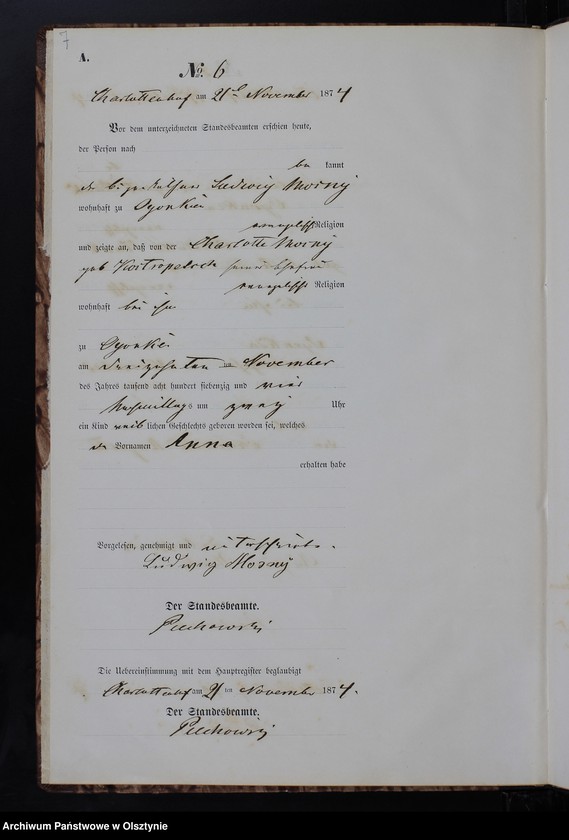 7
A.
No. 6
Charlottenhof am 21ten November 1874
Vor dem unterzeichneten Standesbeamten erschien heute,
der Person nach
be kannt
der Ludwig Morny
wohnhaft zu Ogonken
evangelischer Religion
und zeigte an, daß von der Charlotte Morny
geb seiner Ehefrau
evangelischer Religion
wohnhaft bei ihm
zu Ogonken
am dreizehnten ten November
des Jahres tausend acht hundert siebenzig und vier
Nachmittags um zwey Uhr
ein Kind weib lichen Geschlechts geboren worden sei, welches
den Vornamen Anna
erhalten habe
Vorgelesen, genehmigt und unterschrieben.
Ludwig Morny
Der Standesbeamte.
Piechowski
Die Uebereinstimmung mit dem Hauptregister beglaubigt
Charlottenhof am 21 ten November 1874.
Der Standesbeamte.
Piechowski
Archiwum Państwowe w Olsztynie